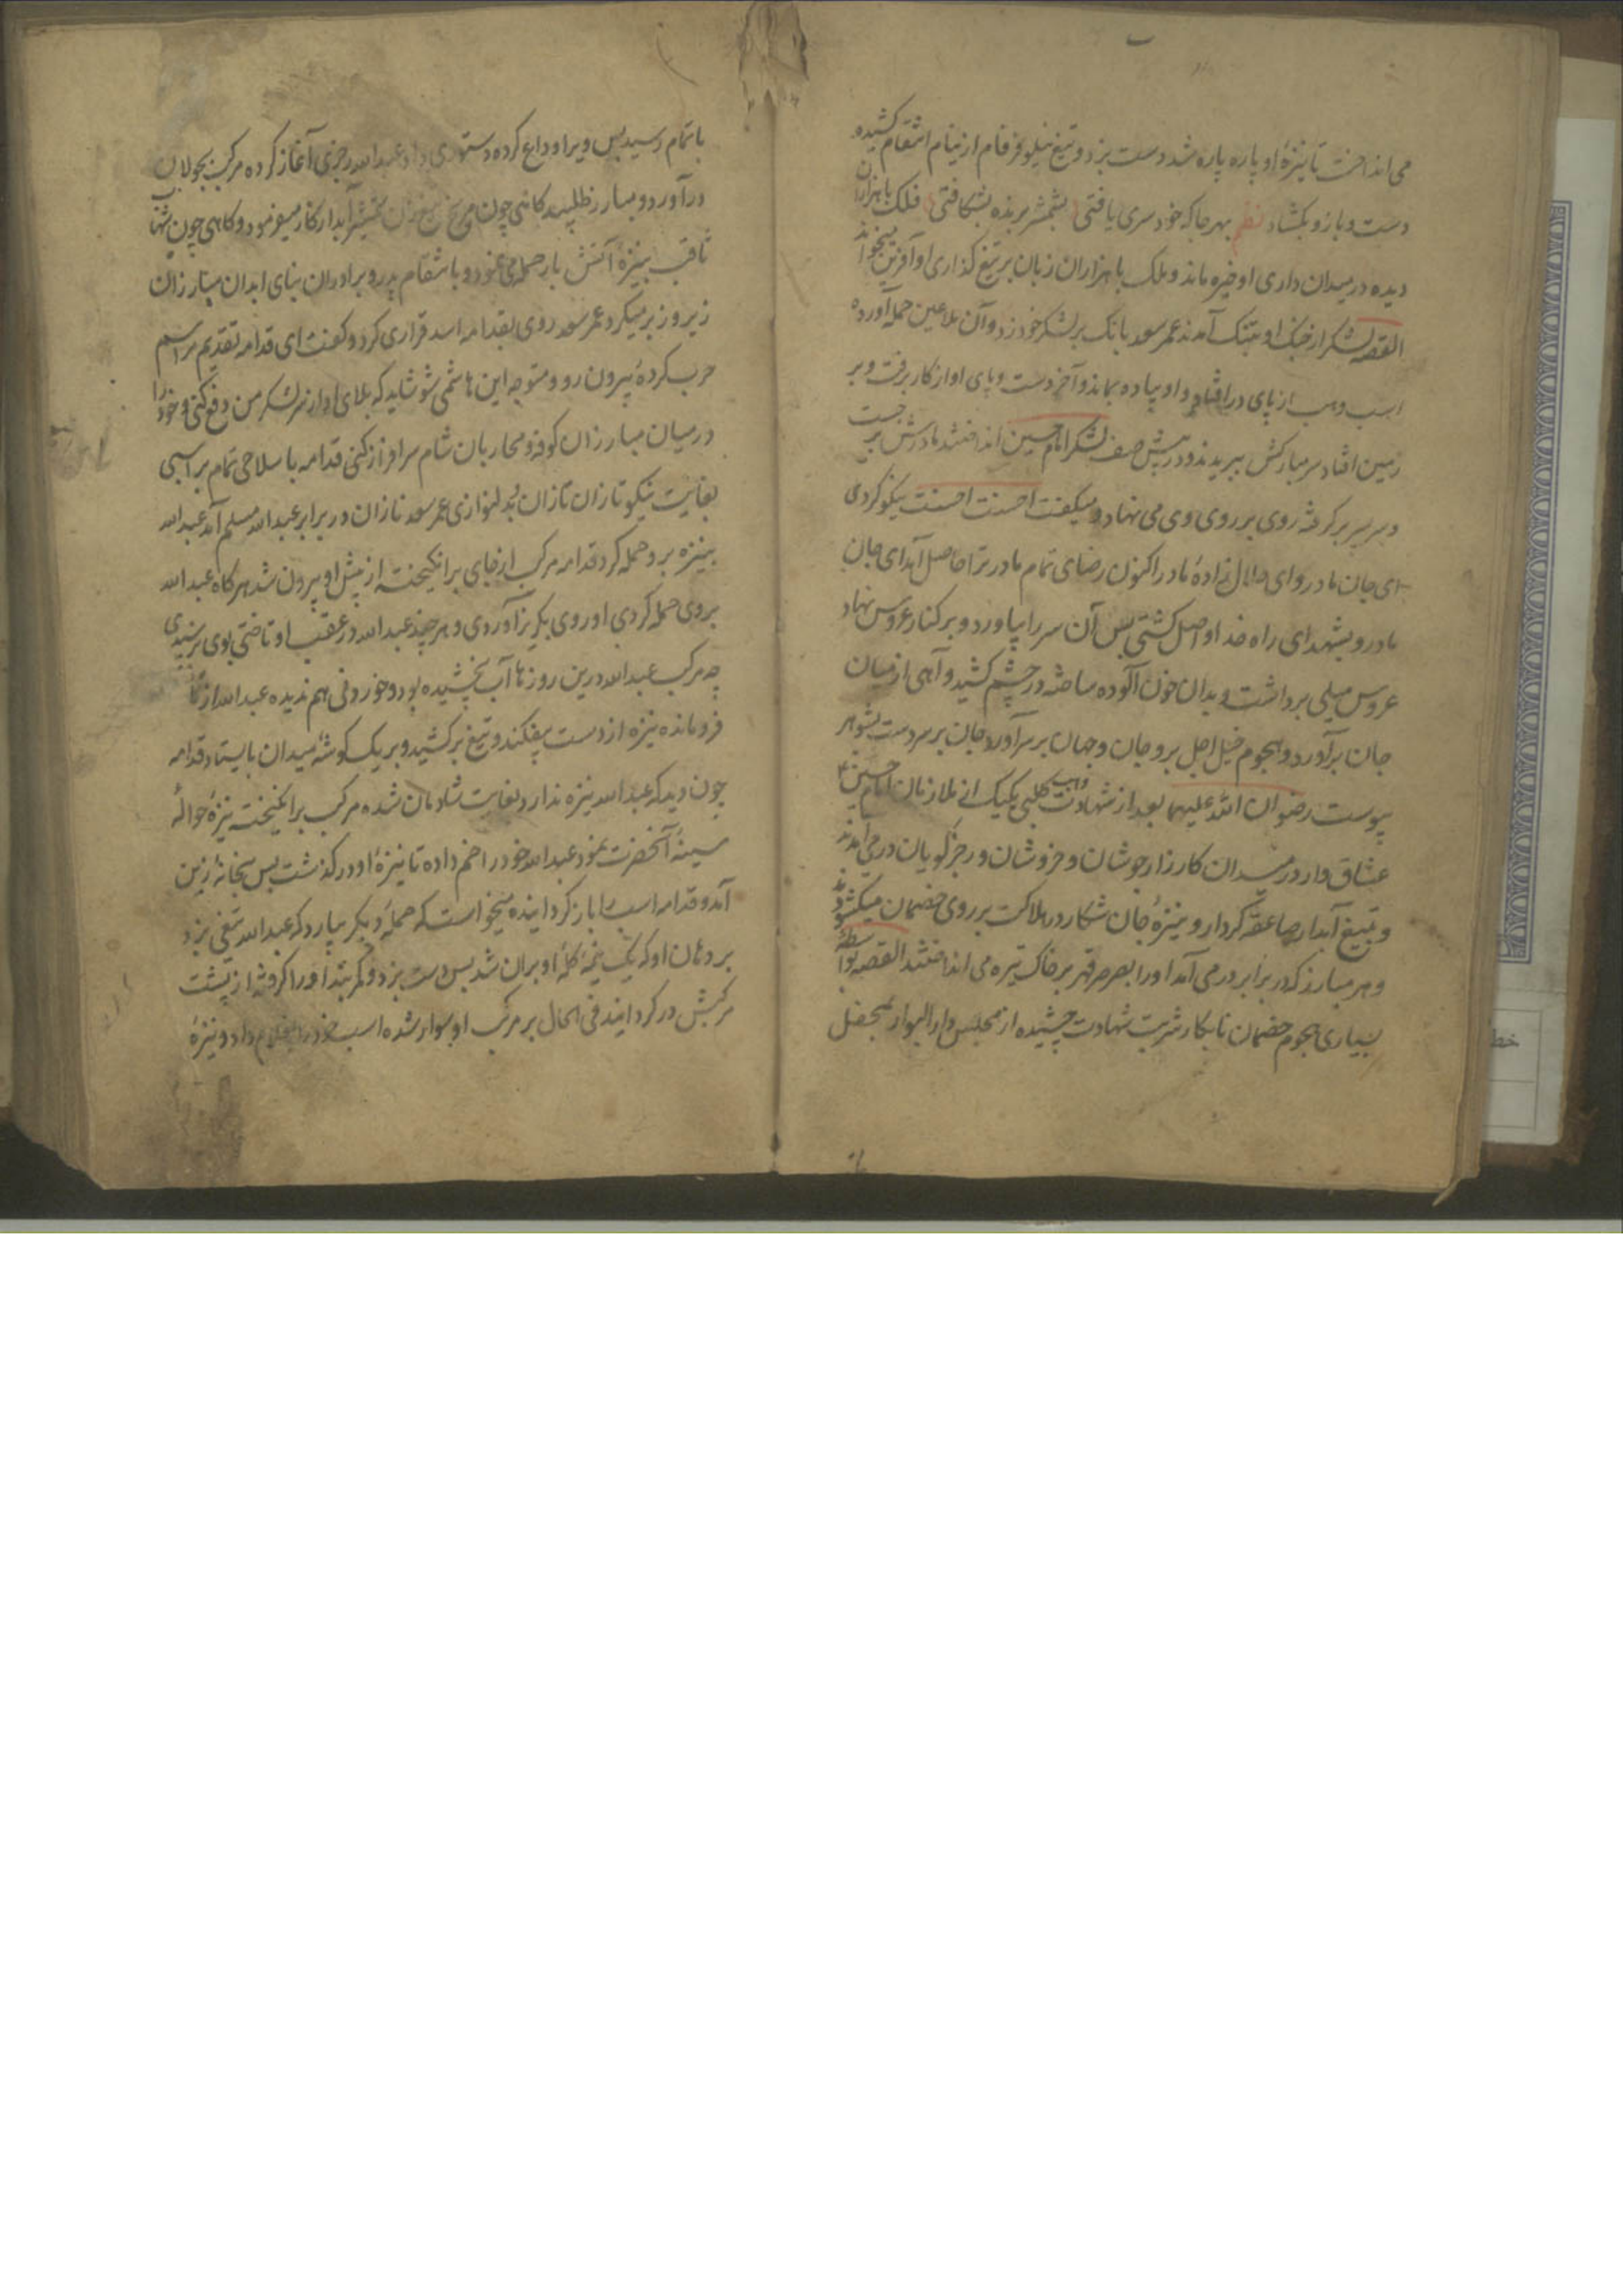 می انداخت تا نیزهٔ او پاره پاره شد دست بزد و تیغ نیلوفر فام از نیام انتقام کشیده
دست و بازو بکشاد نظم بهر جا که خود سری یافتی بشمشیر برنده بشکافتی فلک با هزاران
دیده در میدان داری او خیره ماند و ملک با هزاران زبان بر تیغ گذاری او آفرین میخواند
القصه لشکر از جنک او بتنک آمدند عمر سعد بانک بر لشکر خود زد و آن ملاعین حمله آورده
اسب وهب از پای در افتاد و او پیاده بماند و آخر دست و پای او از کار برفت و بر
زمین افتاد سر مبارکش ببریدند و در پیش صف لشکر امام حسین انداختند مادرش بر جست
و سر پسر بر گرفته روی بر روی وی می نهاد و میکفت احسنت احسنت نیکو کردی
ای جان مادر و ای حلال زادهٔ مادر اکنون رضای تمام مادر ترا حاصل آمد ای جان
مادر و بشهدای راه خدا واصل کشتی پس آن سر را بیاورد و بر کنار عروس نهاد
عروس میلی برداشت و بدان خون آلوده ساخته در چشم کشید و آهی از میان
جان برآورد و هجوم خیل اجل برو جان و جهان بر سر آورد جان بر سر دست بشوهر
پیوست رضوان الله علیهما بعد از شهادت وهب کلبی یکیک از ملازمان امام حسین
عشاق وار در میدان کارزار جوشان و خروشان و رجز کویان در می آمدند
و بتیغ آبدار صاعقه کردار و نیزهٔ جان شکار در هلاکت بر روی خصمان میکشودند
و هر مبارز که در برابر در می آمد او را بصرصر قهر بر خاک تیره می انداختند القصه بواسطهٔ
بسیاری هجوم خصمان نابکار شربت شهادت چشیده از مجلس دار البوار بمحفل
باتمام رسید پس ویرا وداع کرده دستوری داد عبدالله رجزی آغاز کرده مرکب بجولان
درآورد و مبارز طلبید کاهی چون شمشیر آبدار کارزار میفرمود و کاهی چون شهاب
ثاقب بنیزهٔ آتش بار حمله می نمود و بانتقام پدر و برادران بنای ابدان مبارزان
زیر و زبر میکرد عمر سعد روی بقدامه اسد فزاری کرد و کفت ای قدامه تقدیم مراسم
حرب کرده بیرون رو و متوجه این هاشمی شو شاید که بلای او از سر لشکر من دفع کنی و خود را
در میان مبارزان کوفه و محاربان شام سرافراز کنی قدامه با سلاحی تمام بر اسبی
بغایت نیکو تازان تازان بدلنوازی عمر سعد نازان در برابر عبدالله مسلم آمد عبدالله
بنیزه برو حمله کرد قدامه مرکب از جای برانکیخته از پیش او بیرون شد هر کاه عبدالله
بروی حمله کردی او روی بکریز آوردی و هر چند عبدالله در عقب او تاختی بوی نرسیدی
چه مرکب عبدالله درین روزها آب نچشیده بود و خوردنی هم ندیده عبدالله از
فرو مانده نیزه از دست بیفکند و تیغ بر کشید و بر یک کوشهٔ میدان بایستاد قدامه
چون دید که عبدالله نیزه ندارد بغایت شادمان شده مرکب برانکیخت نیزهٔ حوالهٔ
سینهٔ آنحضرت نمود عبدالله خود را خم داده تا نیزهٔ او در گذشت پس بخانهٔ زین
آمد و قدامه اسب را باز کردانیده میخواست که حملهٔ دیکر بیارد که عبدالله تیغی بزد
بر دهان او که یک نیمهٔ کلهٔ او پران شد پس دست بزد و کمربند او را کرفته از پشت
مرکبش در کردانید فی الحال بر مرکب او سوار شده اسب خود را بغلام داد و نیزهٔ